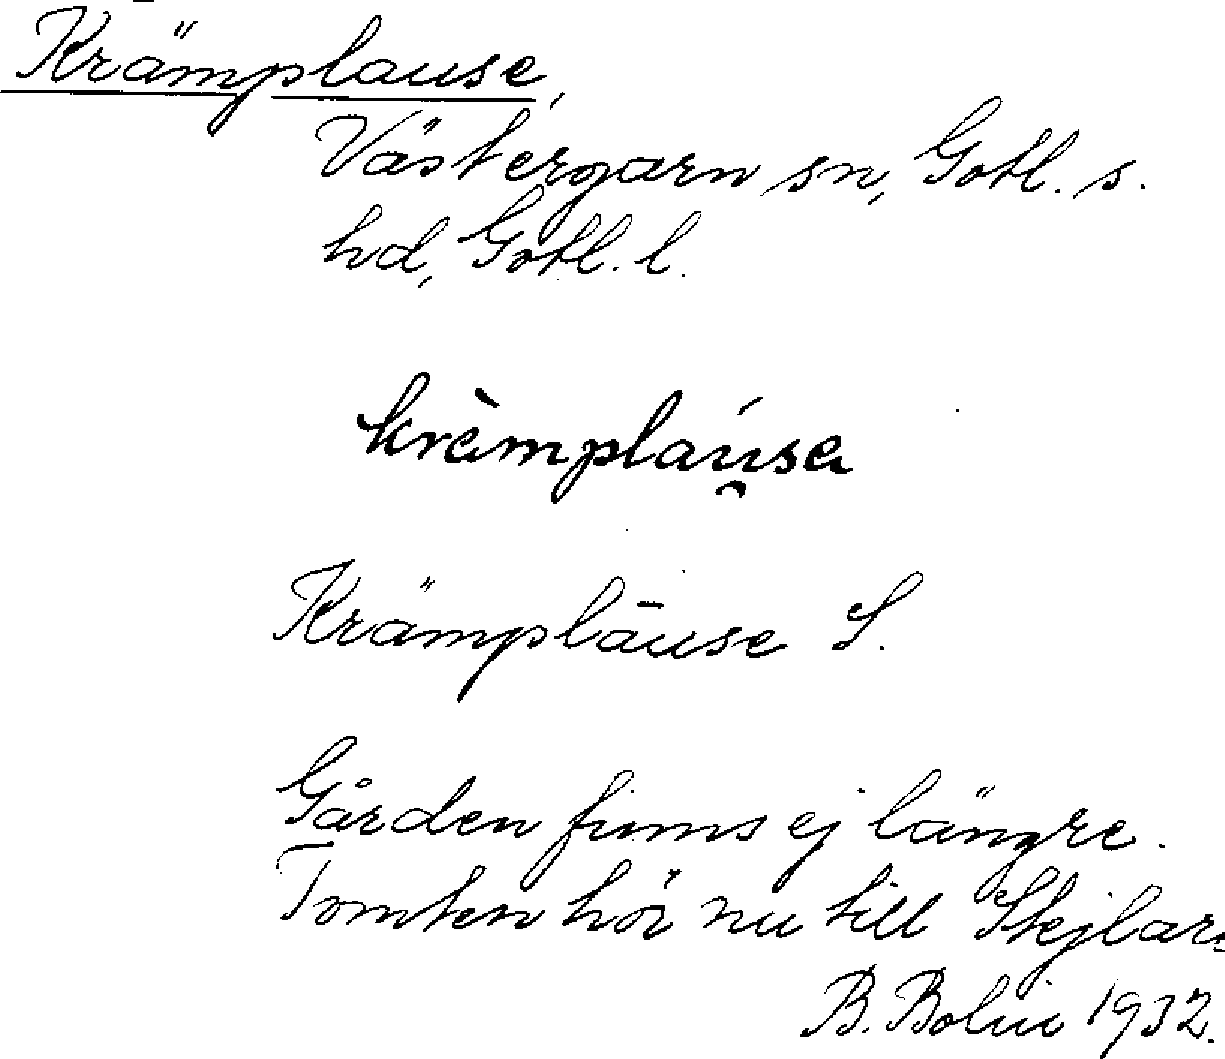 Krämplause,
Västergarn sn, Gotl. s.
hd, Gotl. l.
krämplau̯sa
Krämplāuse S.
Gården finns ej längre.
Tomten hör nu till Stejlars
B. Bolin 1932.